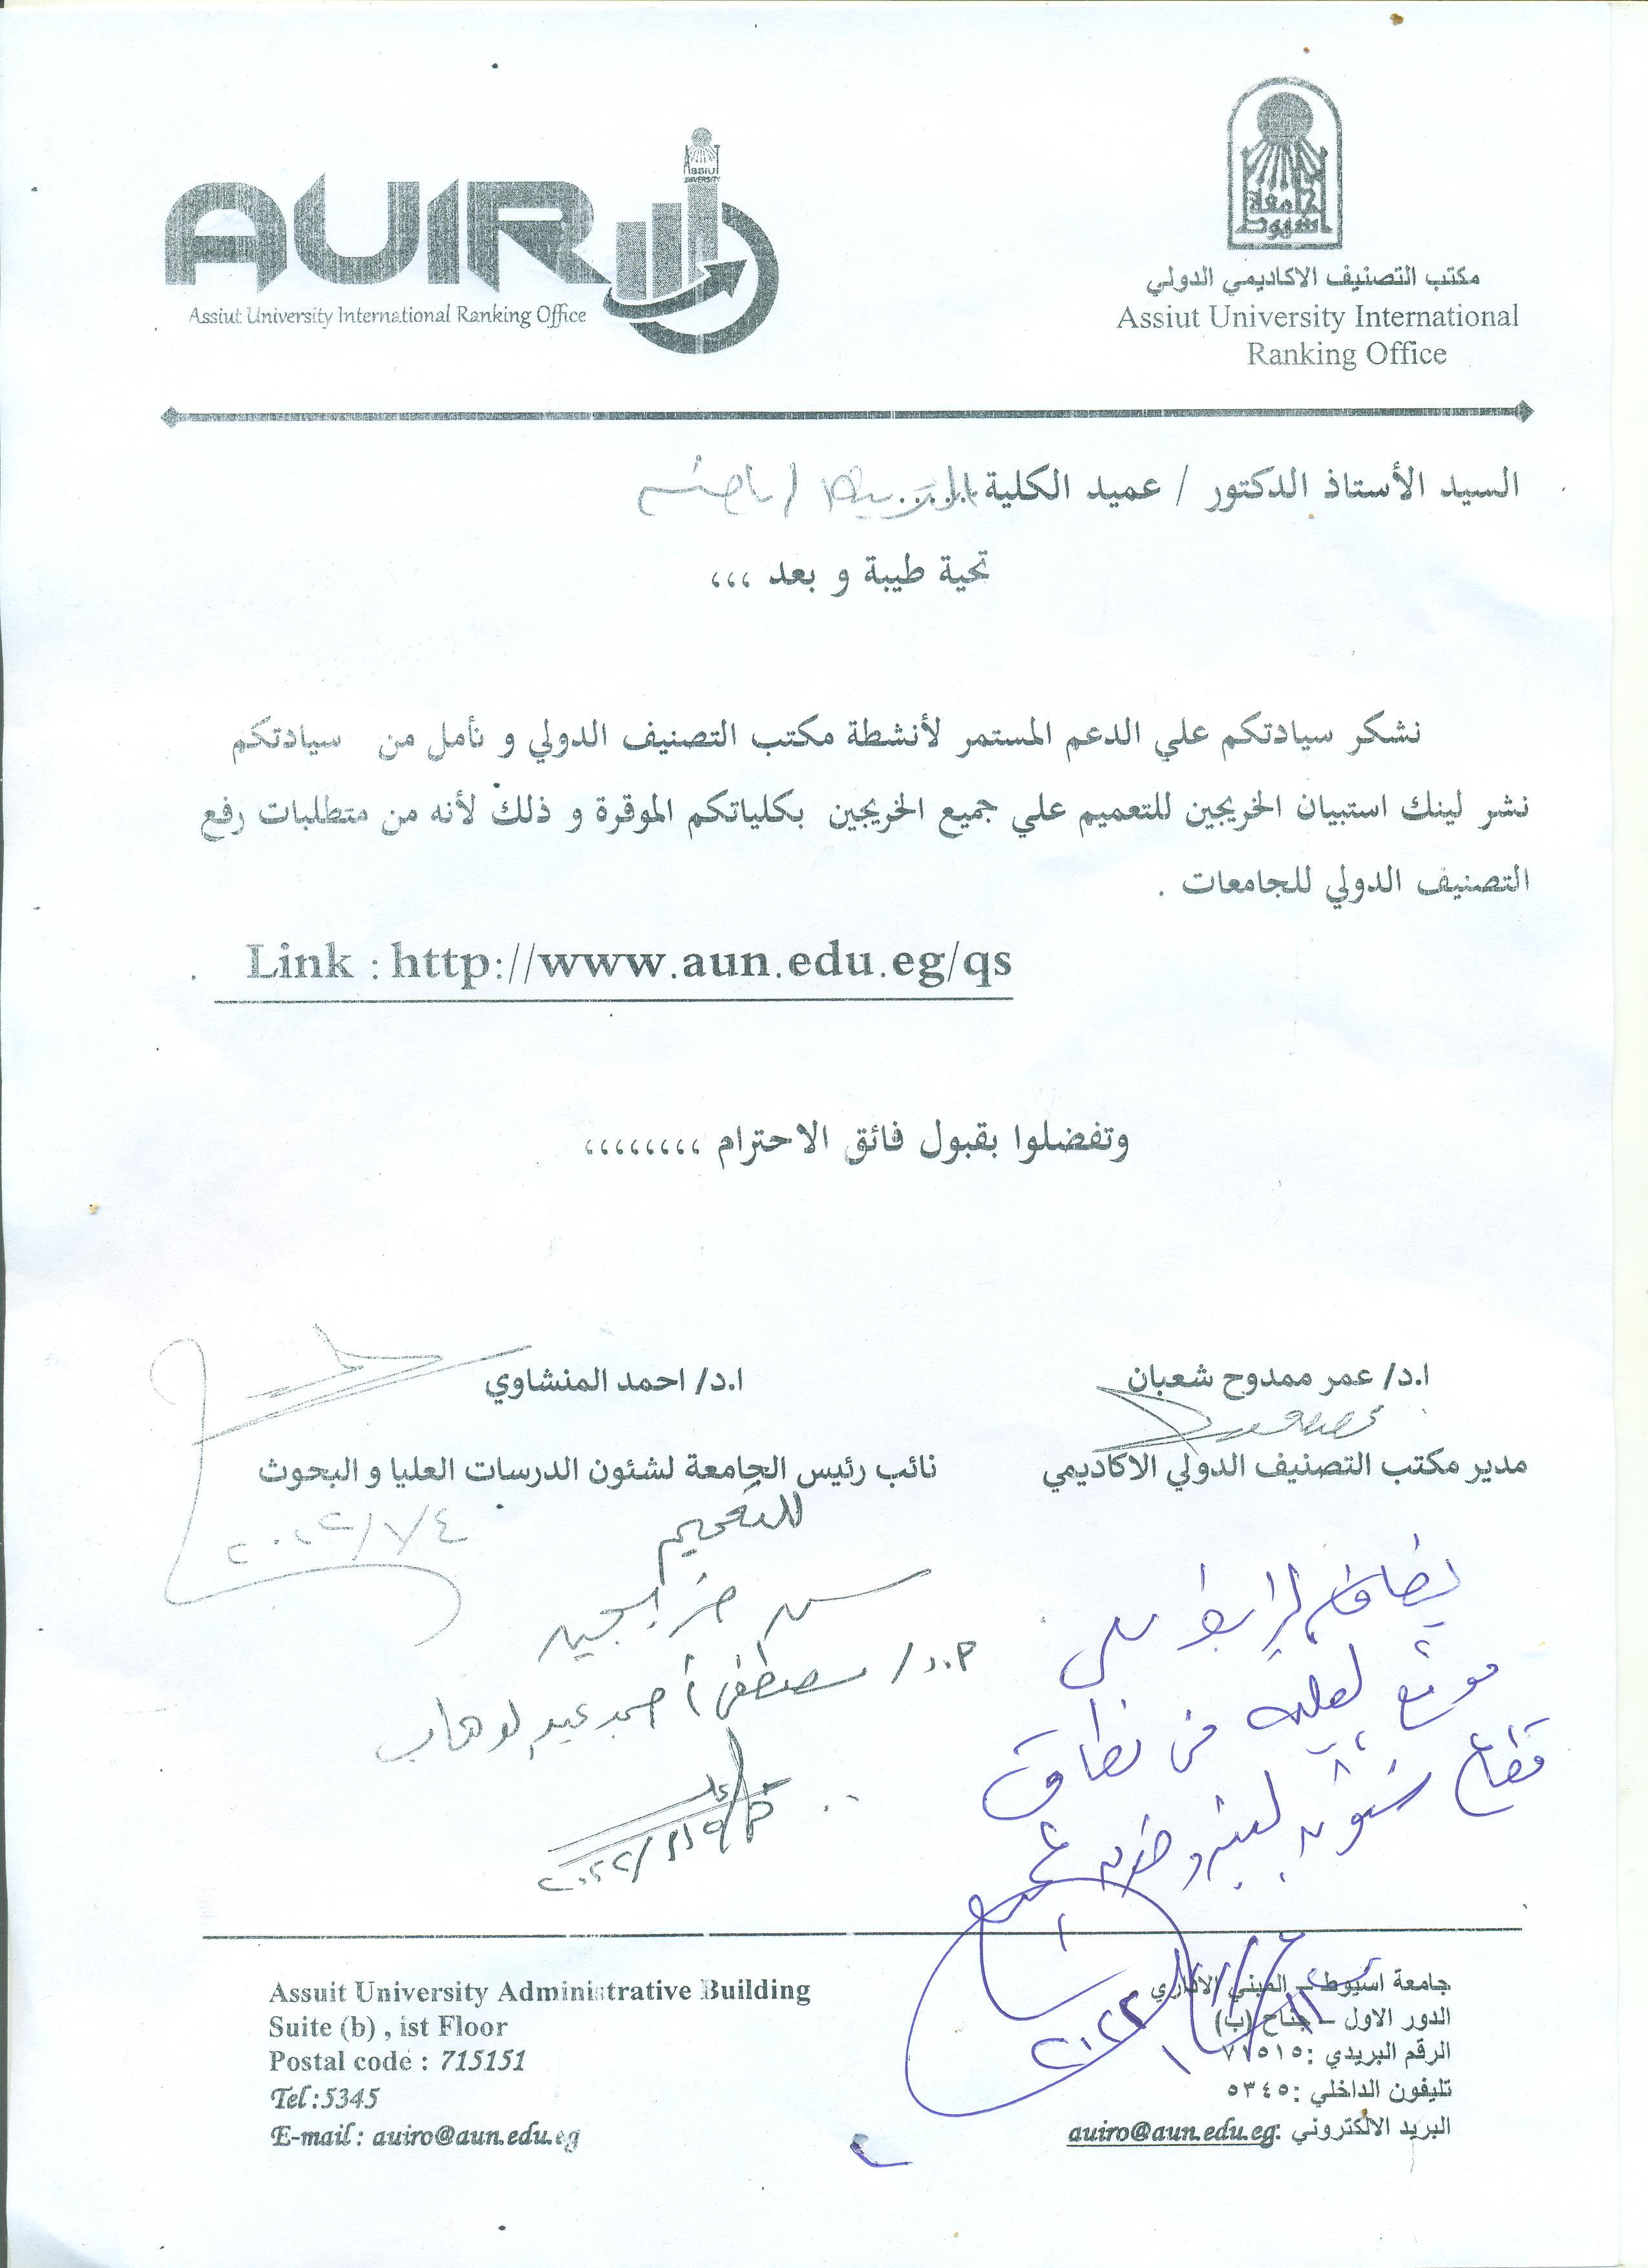 AUIR
ASSIUT
UNIVERSITY
Assiut University International Ranking Office
جامعة
اسيوط
مكتب التصنيف الاكاديمي الدولي
Assiut University International
Ranking Office
السيد الأستاذ الدكتور / عميد الكلية
تحية طيبة و بعد ،،،
نشكر سيادتكم علي الدعم المستمر لأنشطة مكتب التصنيف الدولي و نأمل من سيادتكم
نشر لينك استبيان الخريجين للتعميم علي جميع الخريجين بكلياتكم الموقرة و ذلك لأنه من متطلبات رفع
التصنيف الدولي للجامعات .
Link : http://www.aun.edu.eg/qs
وتفضلوا بقبول فائق الاحترام ،،،،،،،،
ا.د/ عمر ممدوح شعبان
ا.د/ احمد المنشاوي
مدير مكتب التصنيف الدولي الاكاديمي
نائب رئيس الجامعة لشئون الدرسات العليا و البحوث
٢٠٢٢/٧/٤
للتعميم
م.د/ مصطفى أحمد عبد الوهاب
يضاف الرابط على
موقع الكلية في نطاق
قطاع شئون البيئة وخدمة المجتمع
٢٠٢٢
Assuit University Administrative Building
Suite (b) , ist Floor
Postal code : 715151
Tel:5345
E-mail: auiro@aun.edu.eg
جامعة اسيوط – المبني الاداري
الدور الاول – جناح (ب)
الرقم البريدي :٧١٥١٥
تليفون الداخلي :٥٣٤٥
البريد الالكتروني :auiro@aun.edu.eg